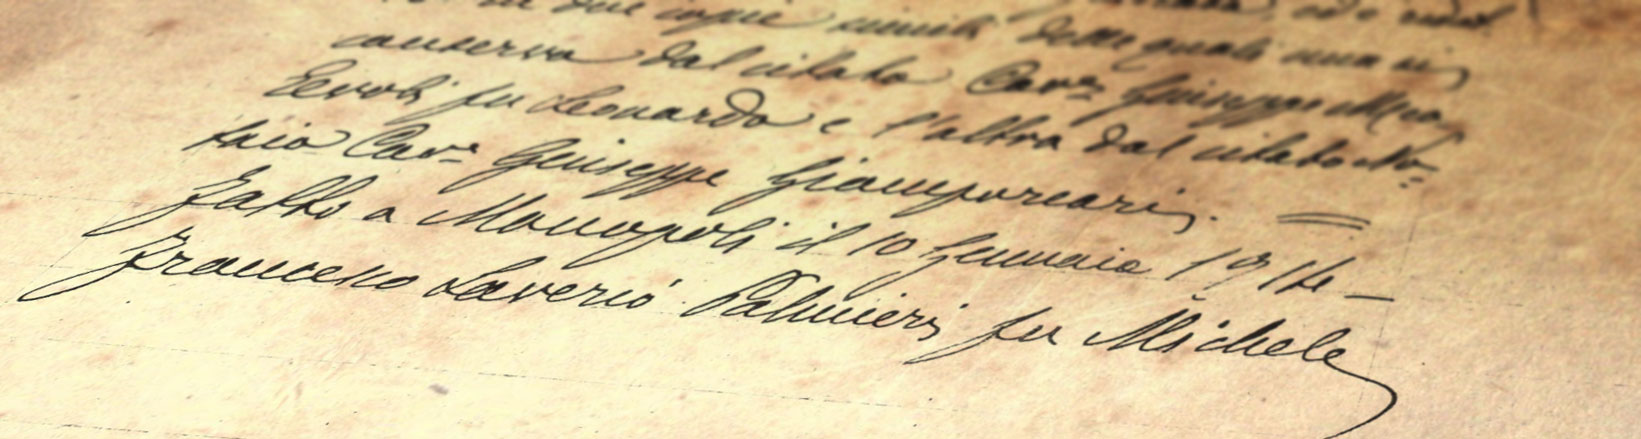 in due copie simili delle quali una si
conserva dal citato Cavr Giuseppe
fu Leonardo e l'altra dal citato No-
taio Cavr Giuseppe
Fatto a Monopoli il 10 Gennaio 1914 —
Francesco Saverio Palmieri fu Michele